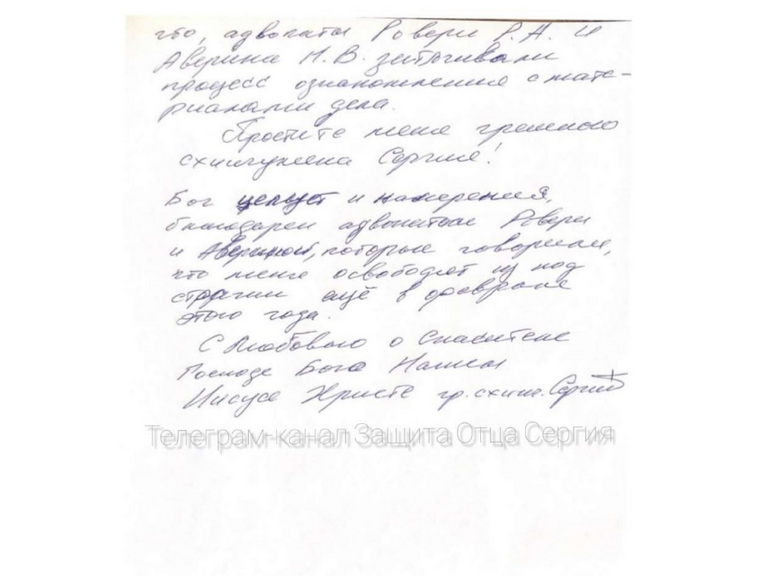 что, адвокаты Ровери Р.А. и
Аверина Н.В. затягивали
процесс ознакомления с мате-
риалами дела.
Простите меня грешного
схиигумена Сергия!
Бог целует и намерения,
благодарен адвокатам Ровери
и Авериной, которые говорили,
что меня освободят из под
стражи ещё в феврале
этого года.
С Любовью о Спасителе
Господе Боге Нашем
Иисусе Христе гр. схииг. Сергий
Телеграм-канал Защита Отца Сергия